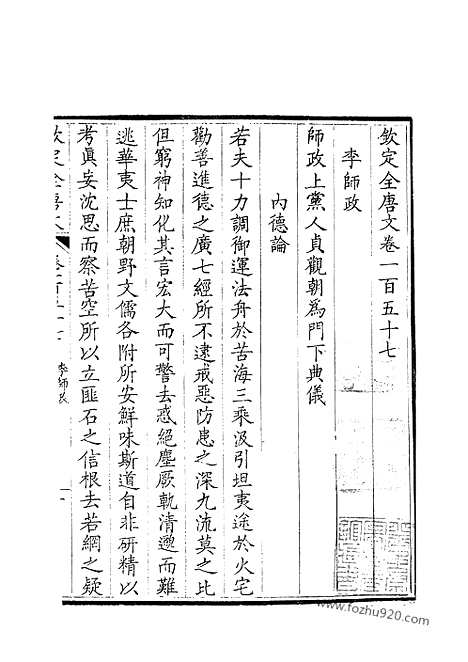 欽定全唐文卷一百五十七
李師政
師政上黨人貞觀朝為門下典儀
內德論
若夫十力調御運法舟於苦海三乘汲引坦夷途於火宅
勸善進德之廣七經所不逮戒惡防患之深九流莫之比
但窮神知化其言宏大而可警去惑絕塵厥軌清邈而難
逃華夷士庶朝野文儒各附所安鮮味斯道自非研精以
考真妄沈思而察苦空所以立匪石之信根去若網之疑
欽定全唐文
卷一百五十七
李師政
一
www.fozhu920.com